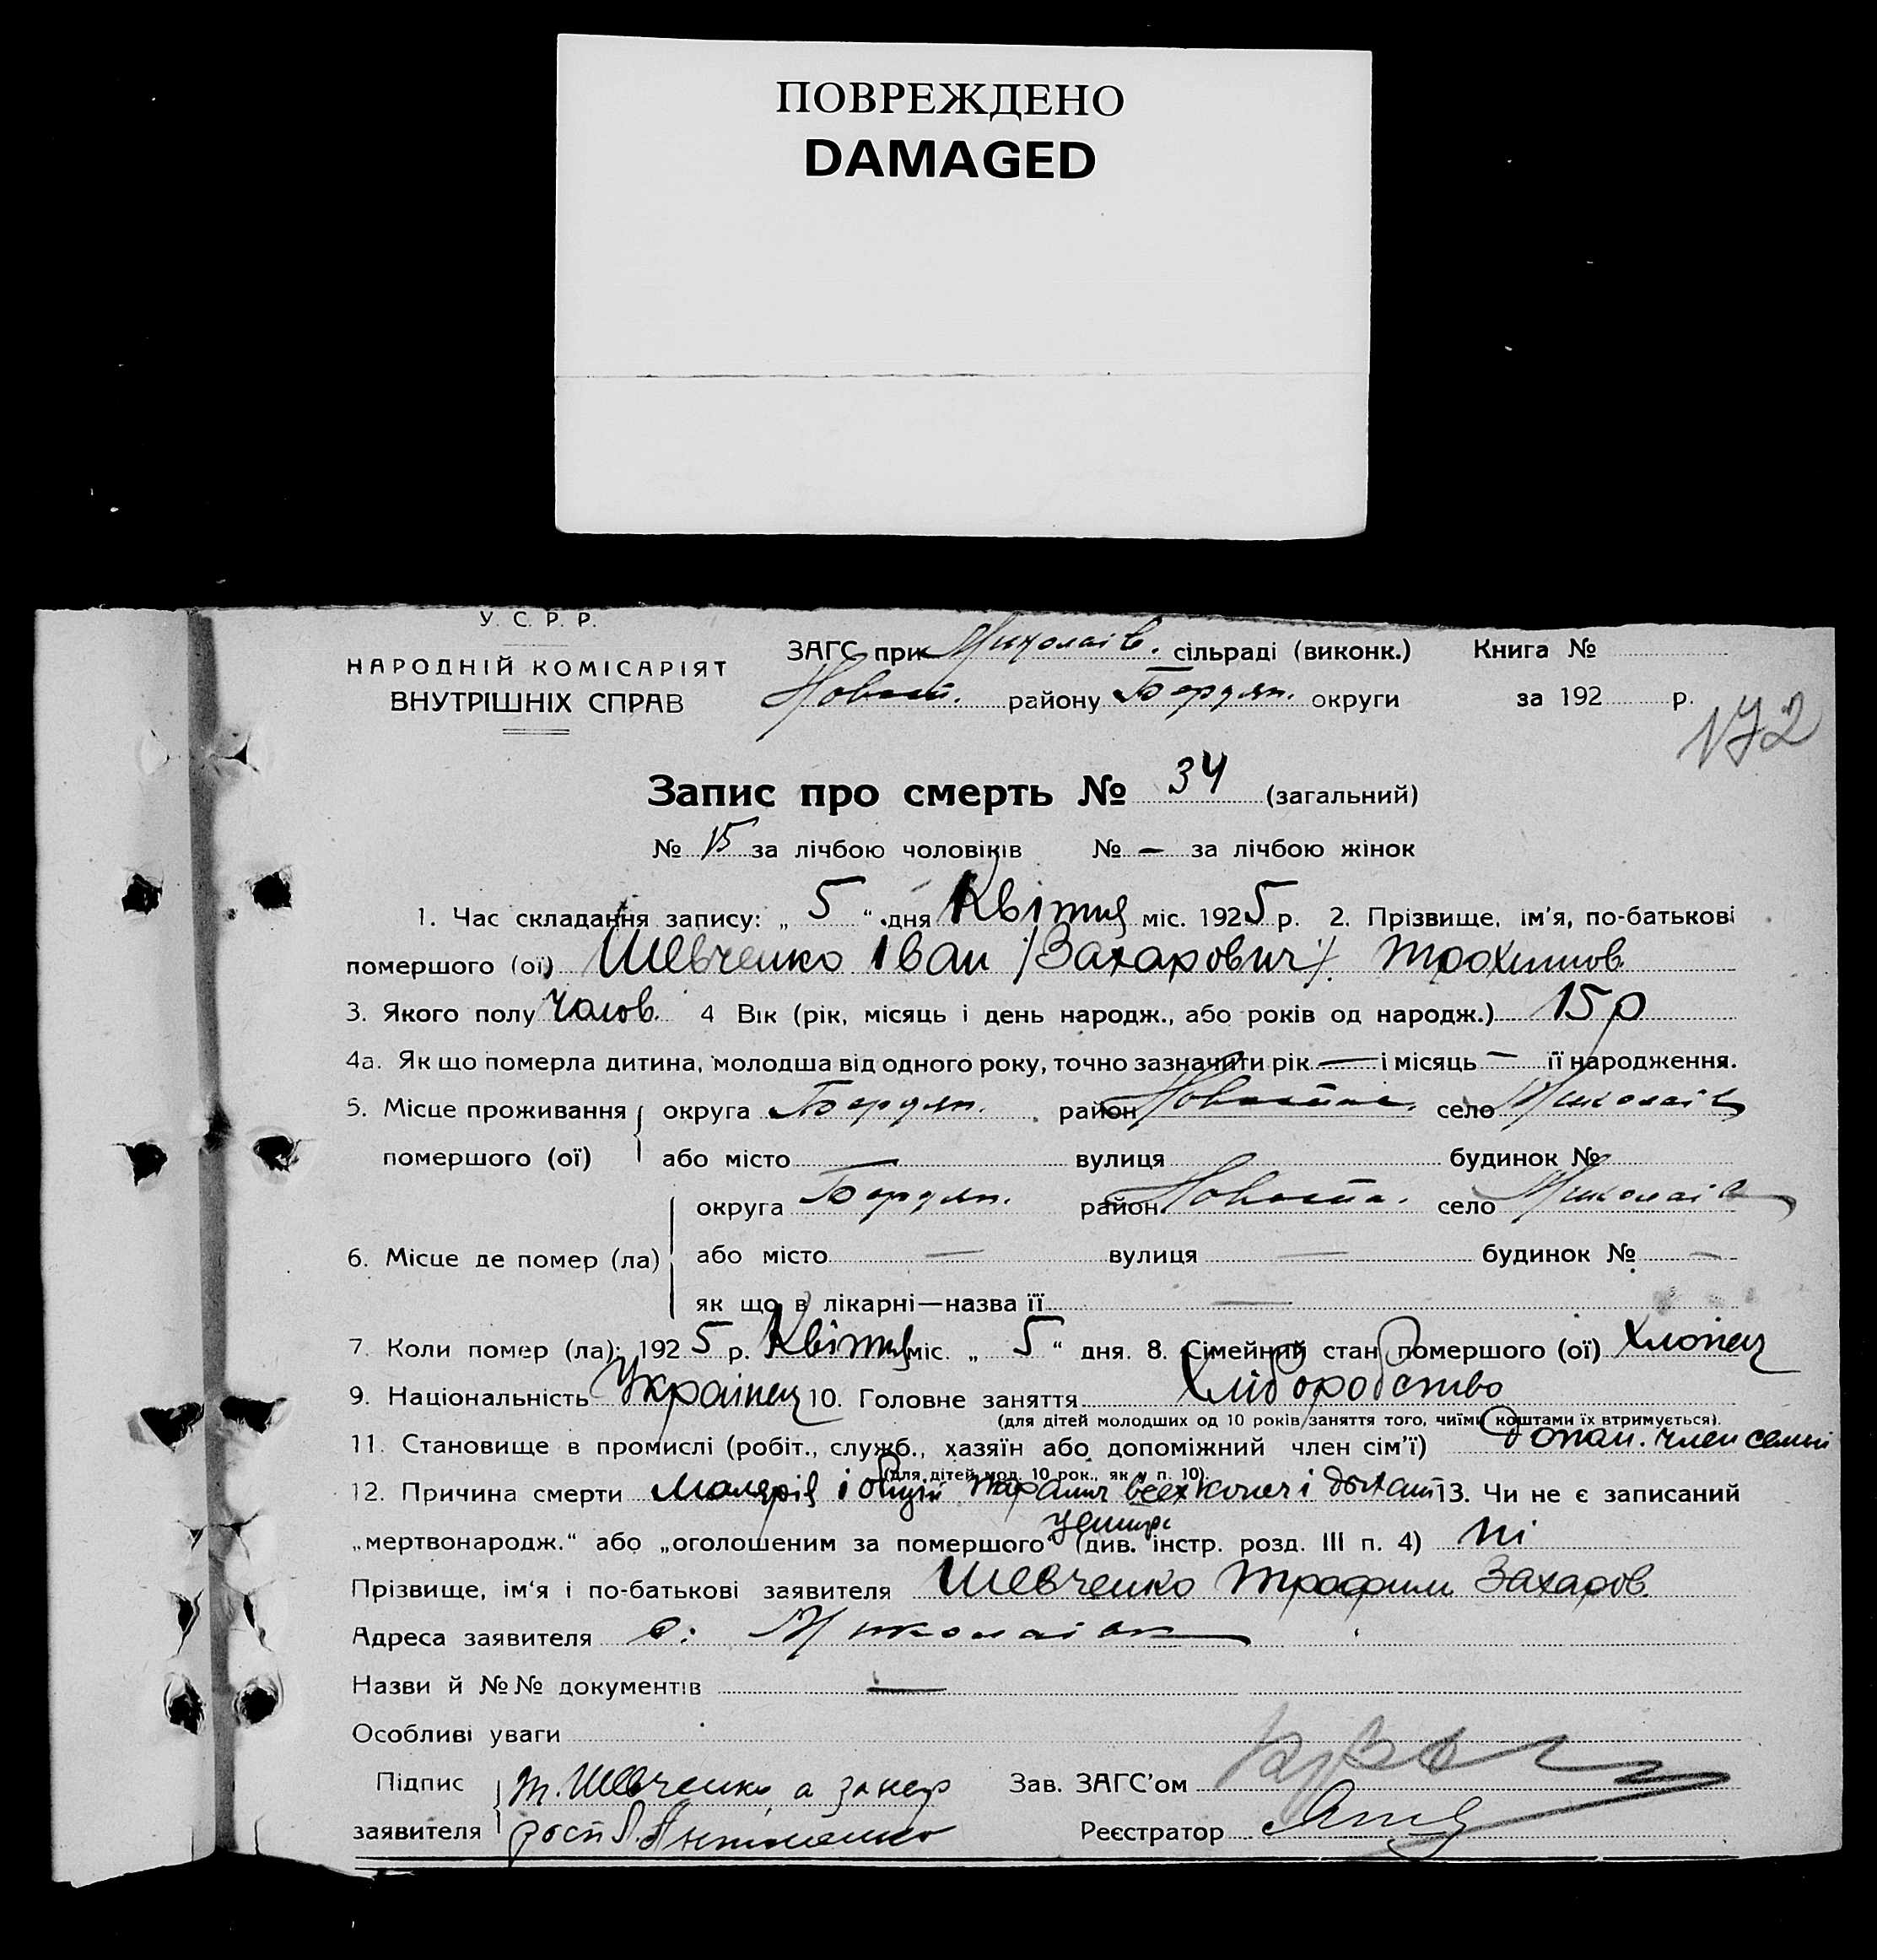 ПОВРЕЖДЕНО
DAMAGED
У. С. Р. Р.
НАРОДНІЙ КОМІСАРІЯТ
ВНУТРІШНІХ СПРАВ
ЗАГС при Миколаів. сільраді (виконк.) Книга №
району Бердян. округи за 192 р.
172
Запис про смерть № 34 (загальний)
№ 15 за лічбою чоловіків № — за лічбою жінок
1. Час складання запису: „ 5 “ дня Квітня міс. 1925 р. 2. Прізвище, ім’я, по-батькові
помершого (ої) Шевченко Іван /Захарович/. Трохимов.
3. Якого полу Чолов. 4 Вік (рік, місяць і день народж., або років од народж.) 15 р
4а. Як що померла дитина, молодша від одного року, точно зазначити рік — і місяць — її народження.
5. Місце проживання округа Бердян. район село Миколаів
помершого (ої) або місто вулиця будинок №
округа Бердян. район село Миколаів
6. Місце де помер (ла) або місто — вулиця — будинок № —
як що в лікарні—назва її —
7. Коли помер (ла): 192 5 р. Квітня міс. „ 5 “ дня. 8. Сімейний стан помершого (ої) Хлопец
9. Національність Украінец 10. Головне заняття Хліборобство
(для дітей молодших од 10 років заняття того, чиїми коштами їх втримується).
11. Становище в промислі (робіт., служб., хазяїн або допоміжний член сім’ї) допом. член семьі
(для дітей мол. 10 рок., як у п. 10).
12. Причина смерти Малярія і общій параліч всех конеч і 13. Чи не є записаний
„мертвонародж.“ або „оголошеним за помершого“ (див. інстр. розд. III п. 4) ні
Прізвище, ім’я і по-батькові заявителя Шевченко Трофим Захаров.
Адреса заявителя с. Миколаівка
Назви й №№ документів —
Особливі уваги
Підпис Т. Шевченко, а за негр Зав. ЗАГС’ом
заявителя росп Реєстратор